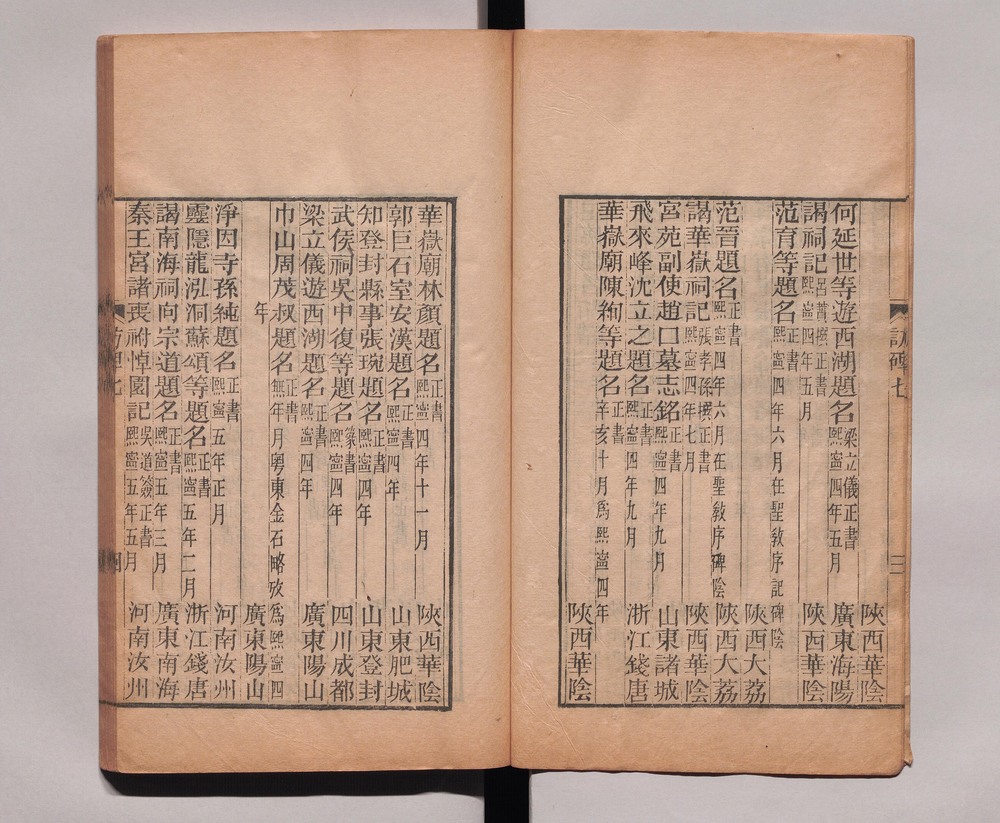 訪碑七
三
陝西華陰
何延世等遊西湖題名 梁立儀正書 熙寧四年五月 廣東海陽
謁祠記 呂蕡撰正書 熙寧四年五月 陝西華陰
范育等題名 正書 熙寧四年六月在聖敎序記碑陰
陝西大荔
范晉題名 正書 熙寧四年六月在聖敎序碑陰 陝西大荔
謁華嶽祠記 張孝孫撰正書 熙寧四年七月 陝西華陰
宮苑副使趙口墓志銘 正書 熙寧四年九月 山東諸城
飛來峰沈立之題名 正書 熙寧四年九月 浙江錢唐
華嶽廟陳絢等題名 正書 辛亥十月爲熙寧四年
陝西華陰
華嶽廟林顏題名 正書 熙寧四年十一月 陝西華陰
郭巨石室安漢題名 正書 熙寧四年 山東肥城
知登封縣事張琬題名 正書 熙寧四年 山東登封
武侯祠吳中復等題名 篆書 熙寧四年 四川成都
梁立儀遊西湖題名 正書 熙寧四年 廣東陽山
巾山周茂叔題名 正書 無年月粵東金石略攷爲熙寧四
年 廣東陽山
淨因寺孫純題名 正書 熙寧五年正月 河南汝州
靈隱龍泓洞蘇頌等題名 正書 熙寧五年二月 浙江錢唐
謁南海祠向宗道題名 正書 熙寧五年三月 廣東南海
秦王宮諸喪祔悼園記 吳道簽正書 熙寧五年五月 河南汝州